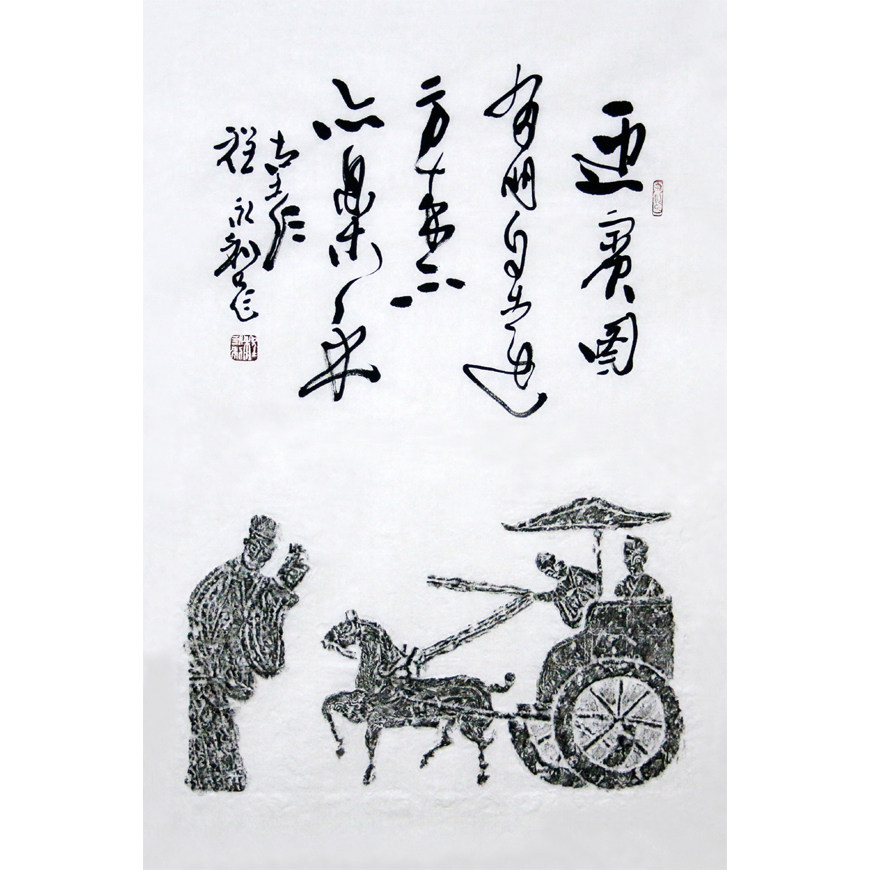 迎賓图
有朋自遠
方来不
亦樂乎
程永利作